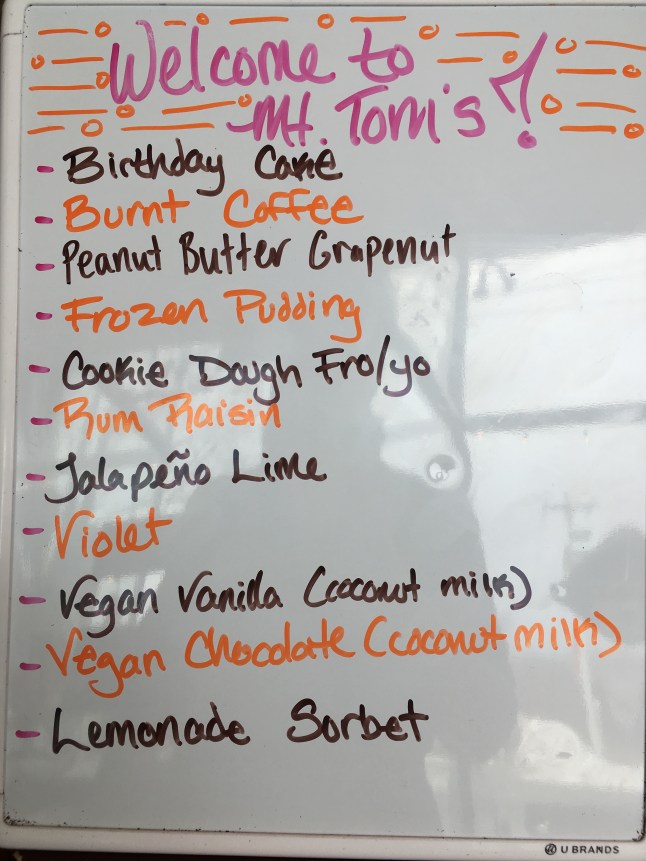 Welcome to
Mt. Tom's!
- Birthday Cake
- Burnt Coffee
- Peanut Butter Grapenut
- Frozen Pudding
- Cookie Dough Fro/yo
- Rum Raisin
- Jalapeño Lime
- Violet
- Vegan Vanilla (coconut milk)
- Vegan Chocolate (coconut milk)
- Lemonade Sorbet
U BRANDS